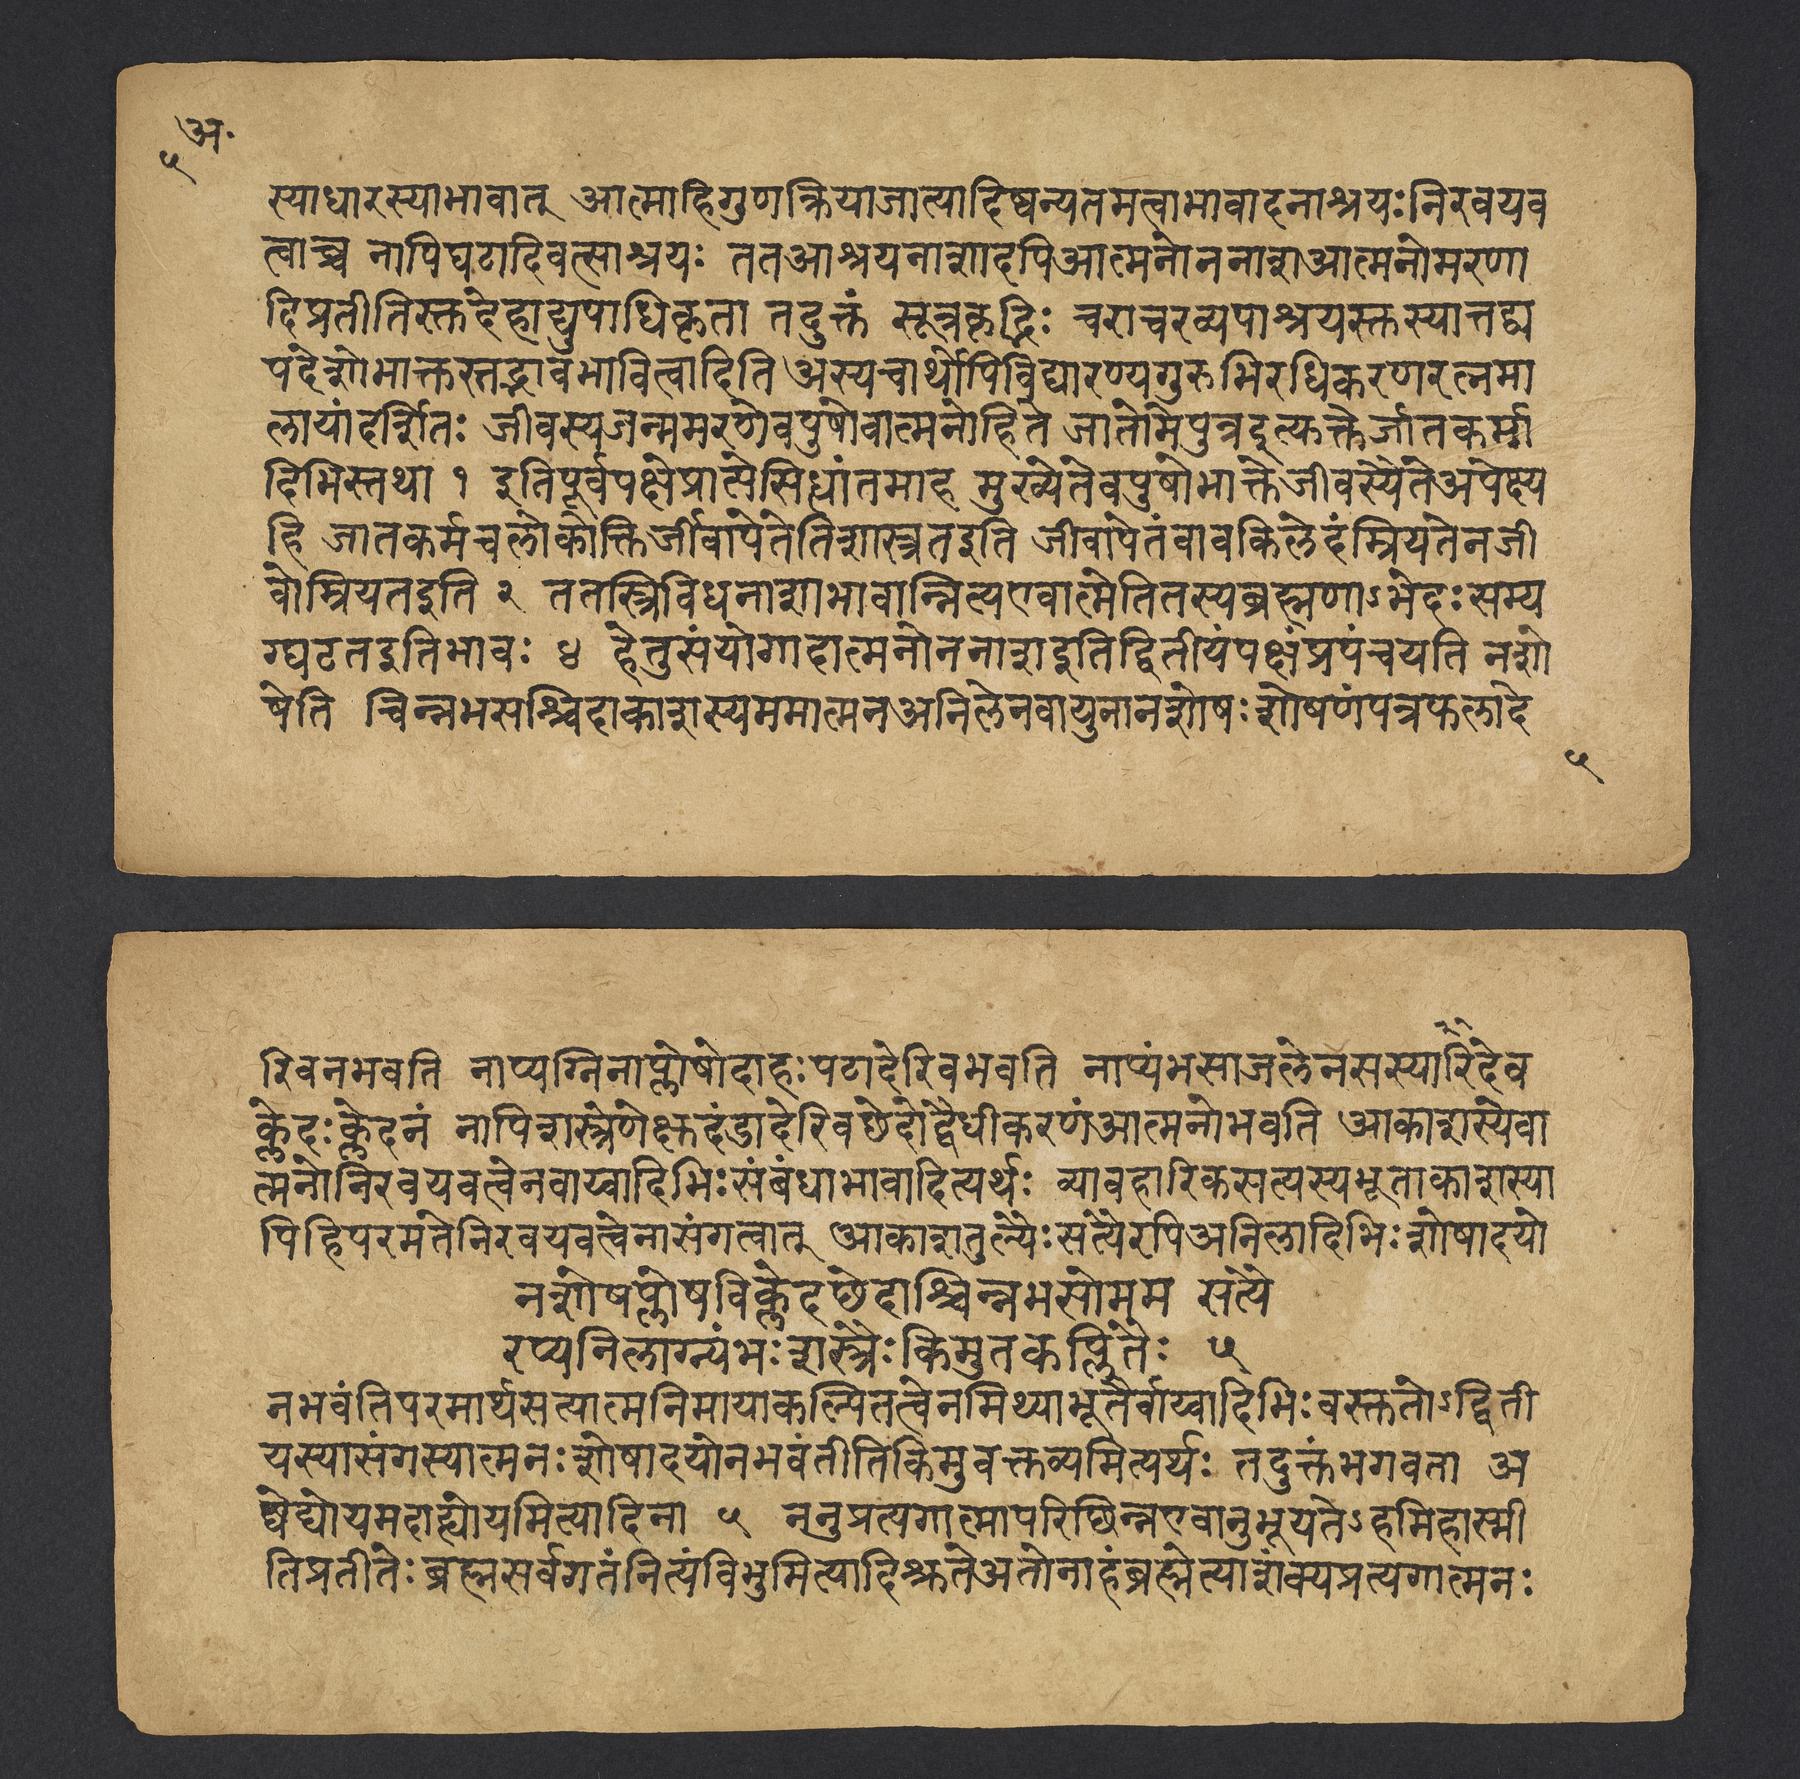 अ॰
५
स्याधारस्याभावात् आत्माहिगुणक्रियाजात्यादिष्वन्यतमत्वाभावादनाश्रयःनिरवयव
त्वाच्च नापिघटादिवत्साश्रयः ततआश्रयनाशादपिआत्मनोननाशआत्मनोमरणा
दिप्रतीतिस्तुदेहाद्युपाधिकृता तदुक्तं सूत्रकृद्भिः चराचरव्यपाश्रयस्तुस्यात्तद्व्य
पदेशोभाक्तस्तद्भावभावित्वादिति अस्यचार्थोपिविद्यारण्यगुरुभिरधिकरणरत्नमा
लायांदर्शितः जीवस्यजन्ममरणेवपुषोवात्मनोहिते जातोमेपुत्रइत्युक्तेर्जातकर्मा
दिभिस्तथा १ इतिपूर्वपक्षेप्राप्तेसिधांतमाह मुख्येतेवपुषोभाक्तेजीवस्यैतेअपेक्ष्य
हि जातकर्मचलोकोक्तिर्जीवापेतेतिशास्त्रतइति जीवापेतंवावकिलेदंम्रियतेनजी
वोम्रियतइति २ ततस्त्रिविधनाशाभावान्नित्यएवात्मेतितस्यब्रह्मणाऽभेदःसम्य
ग्घटतइतिभावः ४ हेतुसंयोगादात्मनोननाशइतिद्वितीयंपक्षंप्रपंचयति नशो
षेति चिन्नभसश्चिदाकाशस्यममात्मनअनिलेनवायुनानशोषःशोषणंपत्रफलादे
५
रिवनभवति नाप्यग्निनाप्लोषोदाहःपटादेरिवभवति नाप्यंभसाजलेनसस्यारिदेव
क्लेदःक्लेदनं नापिशस्त्रेणेक्षुदंडादेरिवछेदोद्वैधीकरणंआत्मनोभवति आकाशस्येवा
त्मनोनिरवयवत्वेनवाय्वादिभिःसंबंधाभावादित्यर्थः व्यावहारिकसत्यस्यभूताकाशस्या
पिहिपरमतेनिरवयवत्वेनासंगत्वात् आकाशतुल्यैःसत्यैरपिअनिलादिभिःशोषादयो
नशोषप्लोषविक्लेदछेदाश्चिन्नभसोमम सत्यै
रप्यनिलाग्न्यंभःशस्त्रैःकिमुतकल्पितैः ५
नभवंतिपरमार्थसत्यात्मनिमायाकल्पितत्वेनमिथ्याभूतैर्वाय्वादिभिःवस्तुतोऽद्विती
यस्यासंगस्यात्मनःशोषादयोनभवंतीतिकिमुवक्तव्यमित्यर्थः तदुक्तंभगवता अ
छेद्योयमदाह्योयमित्यादिना ५ ननुप्रत्यगात्मापरिछिन्नएवानुभूयतेऽहमिहास्मी
तिप्रतीतेःब्रह्मसर्वगतंनित्यंविभुमित्यादिश्रुतेअतोनाहंब्रह्मेत्याशंक्यप्रत्यगात्मनः